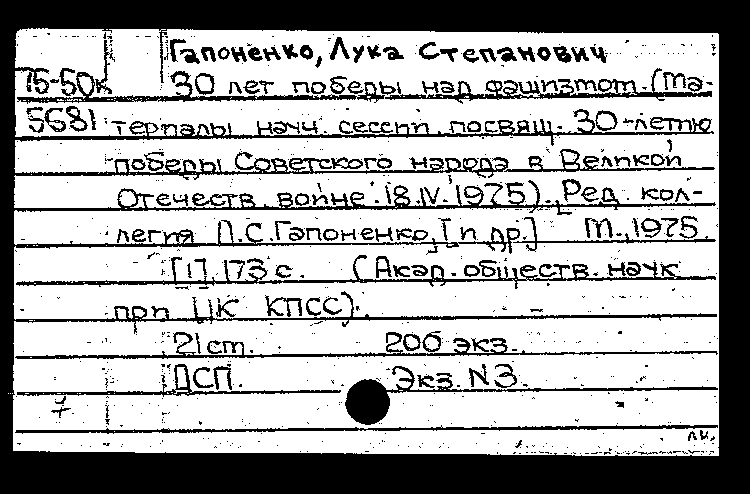 Гапоненко, Лука Степанович
75-50к 30 лет победы над фашизмом. (Ма-
5681 териалы науч. сессии, посвящ. 30-летию
победы Советского народа в Великой
Отечеств. войне. 18.IV.1975). [Ред. кол-
легия Л.С. Гапоненко, [и др.] М., 1975.
[1], 173 с. (Акад. обществ. наук
при ЦК КПСС).
21 см. 200 экз.
ДСП. Экз. N3.
7
л.к.